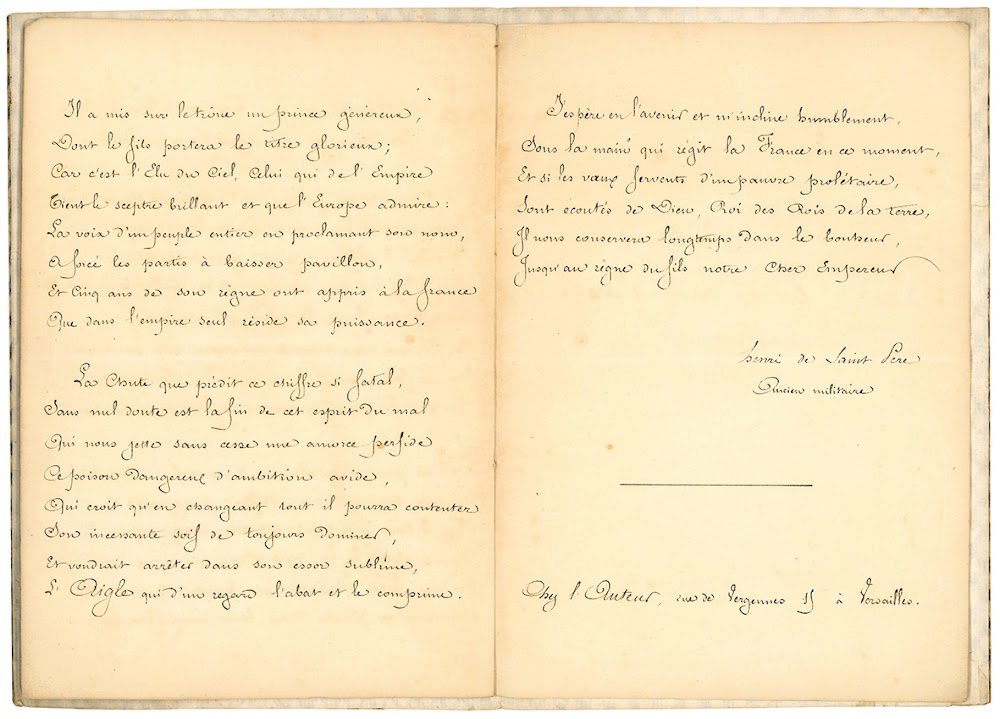 Il a mis sur le trône un prince généreux,
Dont le fils portera le titre glorieux;
Car c'est l'Elu du Ciel, Celui qui de l'Empire
Tient le sceptre brillant et que l'Europe admire:
La voix d'un peuple entier en proclamant son nom,
A forcé les partis à baisser pavillon,
Et Cinq ans de son règne ont appris à la france
Que dans l'empire seul réside sa puissance.
La Chute que prédit ce chiffre si fatal,
Sans nul doute est la fin de cet esprit du mal
Qui nous jette sans cesse une amorce perfide
Ce poison dangereux d'ambition avide,
Qui croit qu'en changeant tout il pourra contenter
Son incessante soif de toujours dominer,
Et voudrait arrêter dans son essor sublime,
L'Aigle qui d'un regard l'abat et le comprime.
J'espère en l'avenir et m'incline humblement,
Sous la main qui régit la France en ce moment,
Et si les vœux fervents d'un pauvre prolétaire,
Sont écoutés de Dieu, Roi des Rois de la terre,
Il nous conservera longtemps dans le bonheur,
Jusqu'au règne du fils notre Cher Empereur
henri de Saint Père
Ancien militaire
Chez l'Auteur, rue de Vergennes 15 à Versailles.